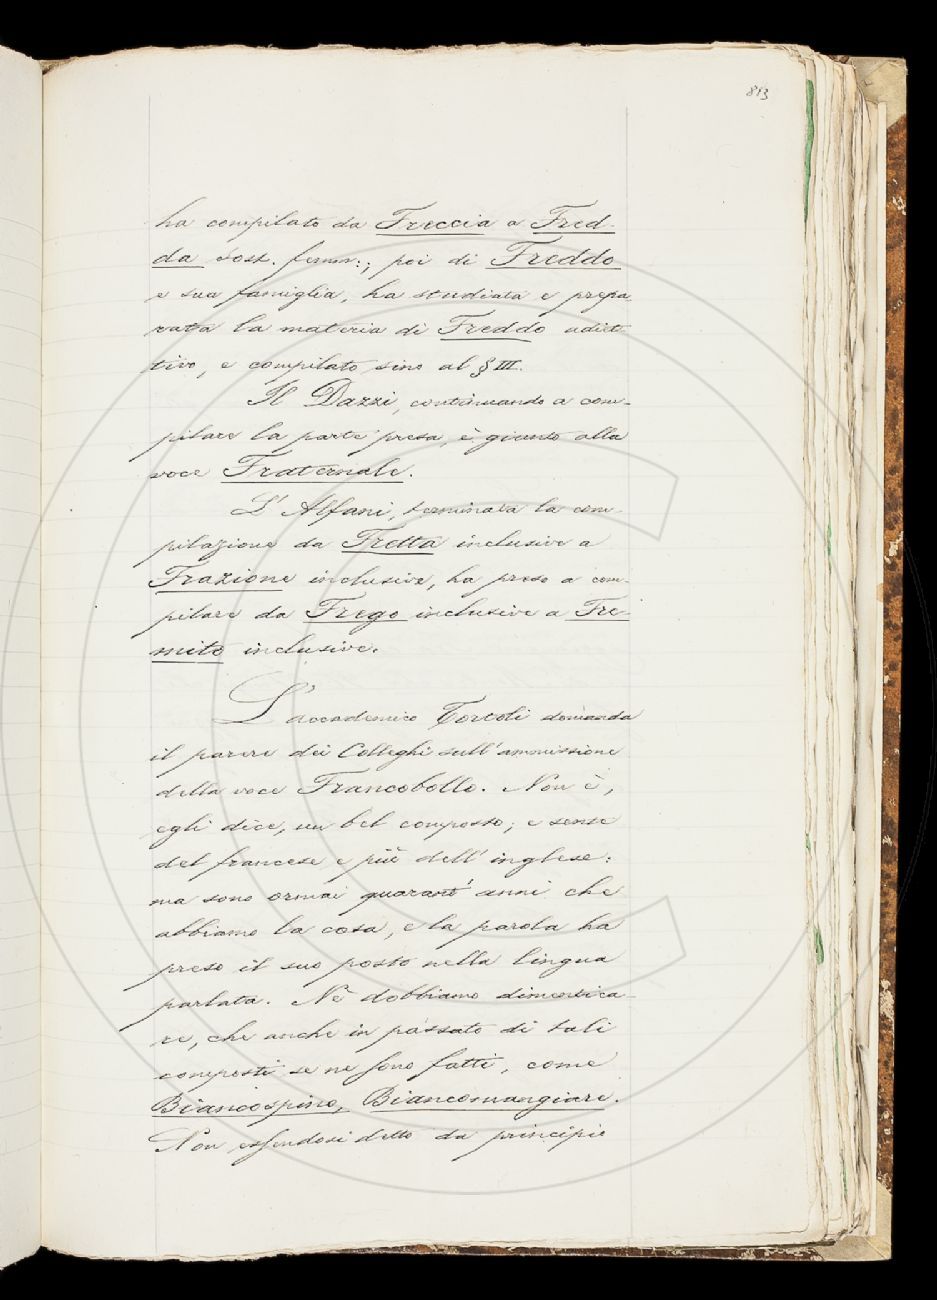 813
ha compilato da Freccia a Fred-
da sost. femm:; poi di Freddo
e sua famiglia, ha studiata e prepa
rata la materia di Freddo adiet
tivo, e compilato sino al § III.
Il Dazzi, continuando a com-
pilare la parte presa, è giunto alla
voce Fraternale.
L' Alfani, terminata la com-
pilazione da Fretta inclusive a
Frazione inclusive, ha preso a com-
pilare da Frego inclusive a Fre-
mito inclusive.
L' accademico Tortoli domanda
il parere dei Colleghi sull' ammissione
della voce Francobollo. Non è,
egli dice, un bel composto; e sente
del francese e più dell' inglese:
ma sono ormai quarant' anni che
abbiamo la cosa, e la parola ha
preso il suo posto nella lingua
parlata. Nè dobbiamo dimentica-
re, che anche in passato di tali
composti se ne sono fatti, come
Biancospino, Biancomangiare.
Non essendosi detto da principio